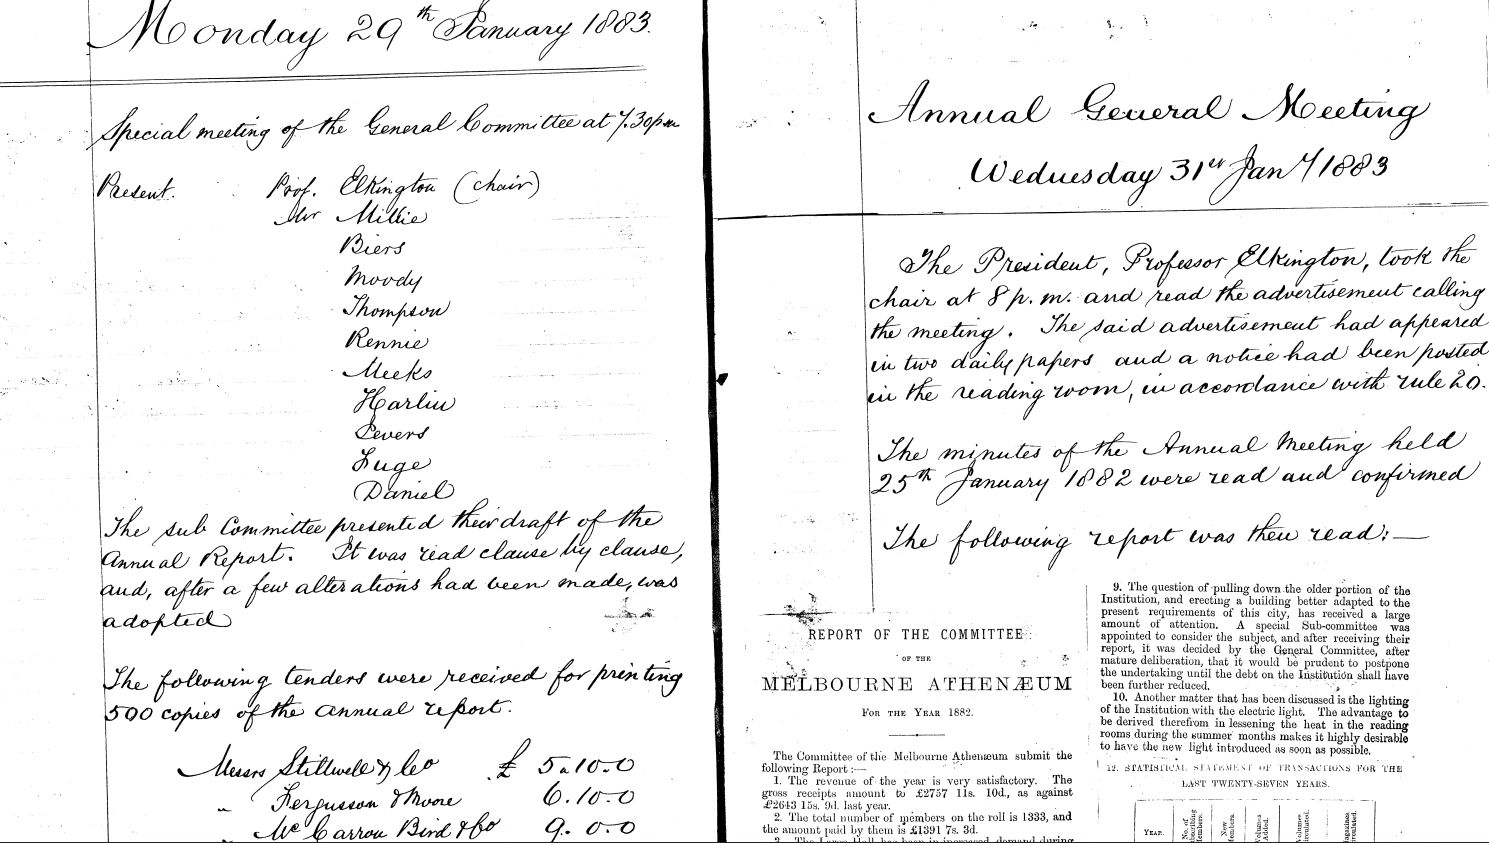 Monday 29th January 1883.
Special meeting of the General Committee at 7.30pm
Present. Prof. Elkington (chair)
Mr Millie
Biers
Moody
Thompson
Rennie
Meeks
Harlin
Levers
Fuge
Daniel
The sub Committee presented their draft of the
Annual Report. It was read clause by clause,
and, after a few alterations had been made, was
adopted
The following tenders were received for printing
500 copies of the annual report.
Messrs Stillwell & Co £ 5.10.0
" Fergusson & Moore 6.10.0
" McCarron Bird & Co 9.0.0
Annual General Meeting
Wednesday 31st Jany 1883
The President, Professor Elkington, took the
chair at 8 p.m. and read the advertisement calling
the meeting. The said advertisement had appeared
in two daily papers and a notice had been posted
in the reading room, in accordance with rule 20.
The minutes of the Annual Meeting held
25th January 1882 were read and confirmed
The following report was then read:—
REPORT OF THE COMMITTEE
OF THE
MELBOURNE ATHENÆUM
FOR THE YEAR 1882.
The Committee of the Melbourne Athenæum submit the
following Report:—
1. The revenue of the year is very satisfactory. The
gross receipts amount to £2757 11s. 10d., as against
£2643 15s. 9d. last year.
2. The total number of members on the roll is 1333, and
the amount paid by them is £1391 7s. 3d.
3. The Large Hall has been in increased demand during
9. The question of pulling down the older portion of the
Institution, and erecting a building better adapted to the
present requirements of this city, has received a large
amount of attention. A special Sub-committee was
appointed to consider the subject, and after receiving their
report, it was decided by the General Committee, after
mature deliberation, that it would be prudent to postpone
the undertaking until the debt on the Institution shall have
been further reduced.
10. Another matter that has been discussed is the lighting
of the Institution with the electric light. The advantage to
be derived therefrom in lessening the heat in the reading
rooms during the summer months makes it highly desirable
to have the new light introduced as soon as possible.
12. STATISTICAL STATEMENT OF TRANSACTIONS FOR THE
LAST TWENTY-SEVEN YEARS.
YEAR.
No. of
Subscribing
Members.
New
Members.
Volumes
Added.
Volumes
Circulated.
Magazines
Circulated.